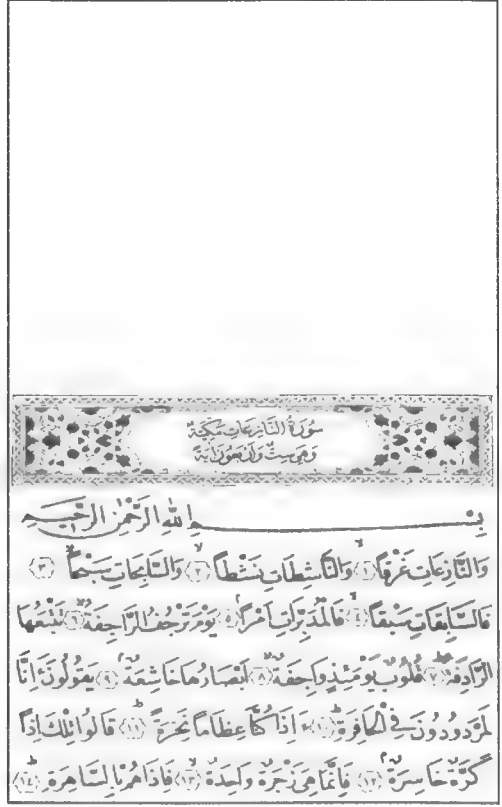 سُورَةُ النَّازِعَاتِ مَكِّيَّةٌ
وَهِيَ سِتٌّ وَأَرْبَعُونَ اٰيَةً
بِسْمِ اللّٰهِ الرَّحْمٰنِ الرَّحِيمِ
وَالنَّازِعَاتِ غَرْقًاۙ ﴿١﴾ وَالنَّاشِطَاتِ نَشْطًاۙ ﴿٢﴾ وَالسَّابِحَاتِ سَبْحًاۙ ﴿٣﴾
فَالسَّابِقَاتِ سَبْقًاۙ ﴿٤﴾ فَالْمُدَبِّرَاتِ اَمْرًاۢ ﴿٥﴾ يَوْمَ تَرْجُفُ الرَّاجِفَةُۙ ﴿٦﴾ تَتْبَعُهَا
الرَّادِفَةُۜ ﴿٧﴾ قُلُوبٌ يَوْمَئِذٍ وَاجِفَةٌۙ ﴿٨﴾ اَبْصَارُهَا خَاشِعَةٌۢ ﴿٩﴾ يَقُولُونَ ءَاِنَّا
لَمَرْدُودُونَ فِي الْحَافِرَةِۜ ﴿١٠﴾ ءَاِذَا كُنَّا عِظَامًا نَخِرَةًۜ ﴿١١﴾ قَالُوا تِلْكَ اِذًا
كَرَّةٌ خَاسِرَةٌۢ ﴿١٢﴾ فَاِنَّمَا هِيَ زَجْرَةٌ وَاحِدَةٌۙ ﴿١٣﴾ فَاِذَا هُمْ بِالسَّاهِرَةِۜ ﴿١٤﴾